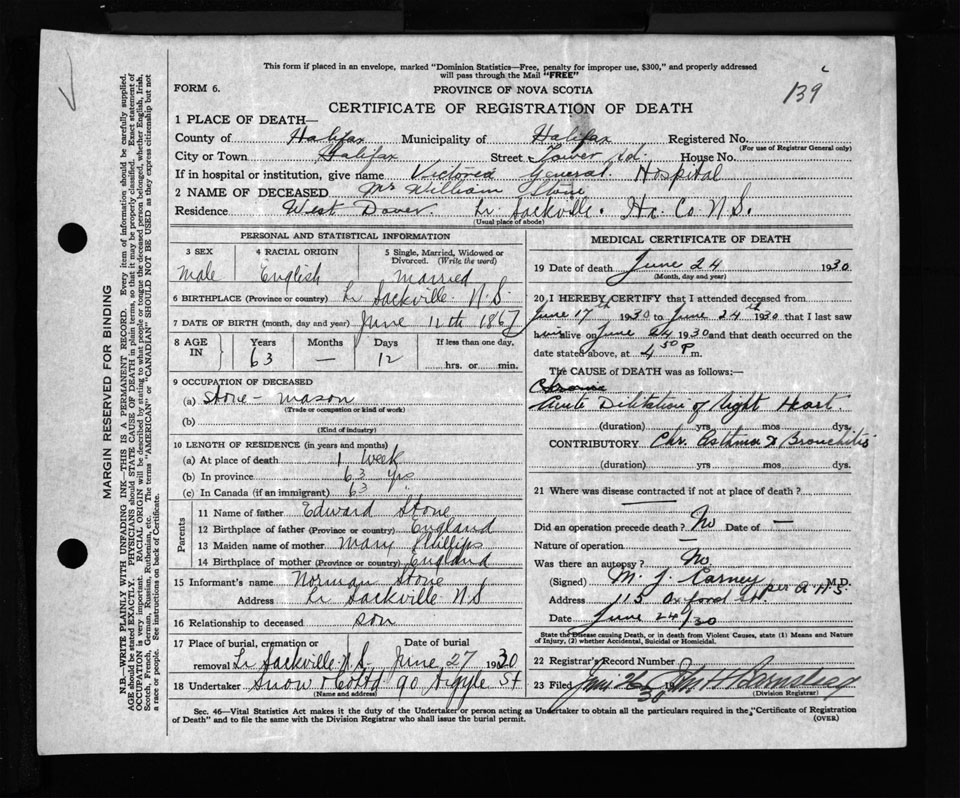 This form if placed in an envelope, marked "Dominion Statistics—Free, penalty for improper use, $300," and properly addressed
will pass through the Mail "FREE"
FORM 6.
PROVINCE OF NOVA SCOTIA
139
CERTIFICATE OF REGISTRATION OF DEATH
1 PLACE OF DEATH—
County of Halifax Municipality of Halifax Registered No.
(For use of Registrar General only)
City or Town Halifax Street Tower Rd. House No.
If in hospital or institution, give name Victoria General Hospital
2 NAME OF DECEASED Mr William Stone
Residence West Dover. Lr Sackville. Hx. Co. N.S.
(Usual place of abode)
PERSONAL AND STATISTICAL INFORMATION
3 SEX 4 RACIAL ORIGIN 5 Single, Married, Widowed or
Divorced. (Write the word)
Male English Married
6 BIRTHPLACE (Province or country) Lr Sackville. N.S.
7 DATE OF BIRTH (month, day and year) June 12th 1867
8 AGE IN Years Months Days If less than one day,
63 — 12 hrs. or min.
9 OCCUPATION OF DECEASED
(a) Stone-mason
(Trade or occupation or kind of work)
(b)
(Kind of industry)
10 LENGTH OF RESIDENCE (in years and months)
(a) At place of death 1 week
(b) In province 63 yrs
(c) In Canada (if an immigrant) 63
Parents
11 Name of father Edward Stone
12 Birthplace of father (Province or country) England
13 Maiden name of mother Mary Phillips
14 Birthplace of mother (Province or country) England
15 Informant's name Norman Stone
Address Lr Sackville N.S
16 Relationship to deceased son
17 Place of burial, cremation or Date of burial
removal Lr Sackville. N.S. June 27 1930
18 Undertaker Snow & Co Ltd 90 Argyle St
(Name and address)
MEDICAL CERTIFICATE OF DEATH
19 Date of death June 24 1930
(Month, day and year)
20 I HEREBY CERTIFY that I attended deceased from
June 17th 1930 to June 24th 1930 that I last saw
him alive on June 24 1930 and that death occurred on the
date stated above, at 4 50 P m.
The CAUSE of DEATH was as follows:—
Chronic
Acute Dilitation of right Heart.
(duration) yrs mos dys.
CONTRIBUTORY Chr. Asthma & Bronchitis
(duration) yrs mos dys.
21 Where was disease contracted if not at place of death?
Did an operation precede death? No Date of —
Nature of operation —
Was there an autopsy? No
(Signed) M. J. Carney M.D.
per A H S.
Address 115 Oxford St.
Date June 24/30
State the Disease causing Death, or in death from Violent Causes, state (1) Means and Nature
of Injury, (2) whether Accidental, Suicidal or Homicidal.
22 Registrar's Record Number
23 Filed John H Barnstead
(Division Registrar)
Sec. 46—Vital Statistics Act makes it the duty of the Undertaker or person acting as Undertaker to obtain all the particulars required in the "Certificate of Registration
of Death" and to file the same with the Division Registrar who shall issue the burial permit.
(OVER)
MARGIN RESERVED FOR BINDING
N.B.—WRITE PLAINLY WITH UNFADING INK—THIS IS A PERMANENT RECORD. Every item of information should be carefully supplied.
AGE should be stated EXACTLY. PHYSICIANS should STATE CAUSE OF DEATH in plain terms, so that it may be properly classified. Exact statement of
OCCUPATION is very important. RACIAL ORIGIN will be described by stating to what people or tongue the deceased person belonged, whether English, Irish,
Scotch, French, German, Russian, Ruthenian, etc. The terms "AMERICAN" or "CANADIAN" SHOULD NOT BE USED as they express citizenship but not
a race or people. See instructions on back of Certificate.